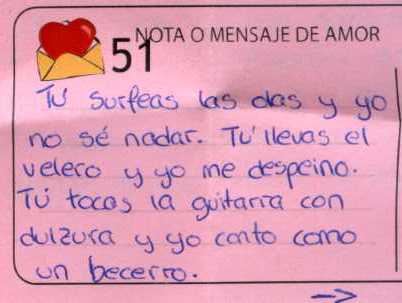 51 NOTA O MENSAJE DE AMOR
Tú surfeas las olas y yo
no sé nadar. Tú llevas el
velero y yo me despeino.
Tú tocas la guitarra con
dulzura y yo canto como
un becerro.